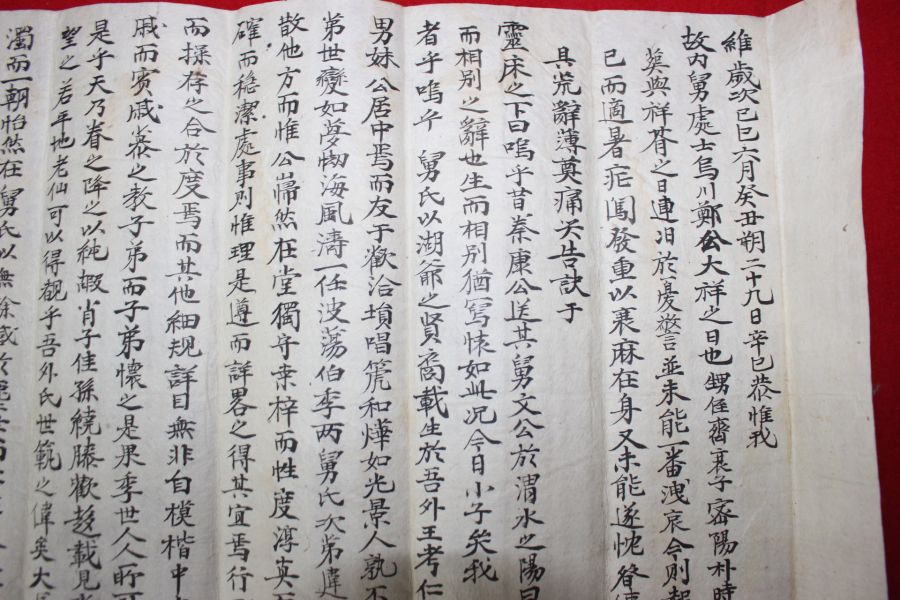 維歲次己巳六月癸丑朔二十九日辛巳恭惟我
故內舅處士烏川鄭公大祥之日也甥侄齊衰子密陽朴時
葬與祥朞之日連汨於憂並未能一番洩哀今則
已而適暑疟闖發重以衰麻在身又未能遂忱
具荒辭薄奠痛哭告訣于
靈床之下曰嗚乎昔秦康公送其舅文公於渭水之陽曰
而相別之辭也生而相別猶寫懷如此况今日小子矣我
者乎嗚乎 舅氏以湖爺之賢裔載生於吾外王考仁
男妹公居中焉而友于歡洽塤唱箎和燁如光景人孰不
第世變如夢惚海風濤一任波蕩伯季两舅氏次第違
散他方而惟公巋然在堂獨守桒梓而性度淳
確而穩潔處事則惟理是遵而詳畧之得其宜焉行
而揉存之合於度焉而其他細規詳目無非自模楷中
戚而賓戚慕之教子弟而子弟懷之是果季世人人所可
是乎天乃眷之降之以純嘏肖子佳孫繞膝歡趍載見
望之若平地老仙可以得覩乎吾外氏世範之偉矣大
濁而一朝怡然在舅氏以無餘感於